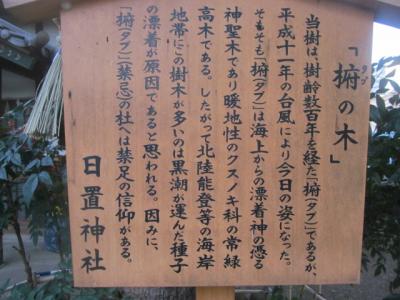 「椨の木」
タブ
当樹は、樹齢数百年を経た「椨(タブ)」であるが、
平成十一年の台風により今日の姿になった。
そもそも「椨(タブ)」は海上からの漂着神の憑る
神聖木であり暖地性のクスノキ科の常緑
高木である。したがって北陸能登等の海岸
地帯にこの樹木が多いのは黒潮が運んだ種子
の漂着が原因であると思われる。因みに、
「椨(タブ)(禁忌)の杜へは禁足の信仰がある。
日置神社